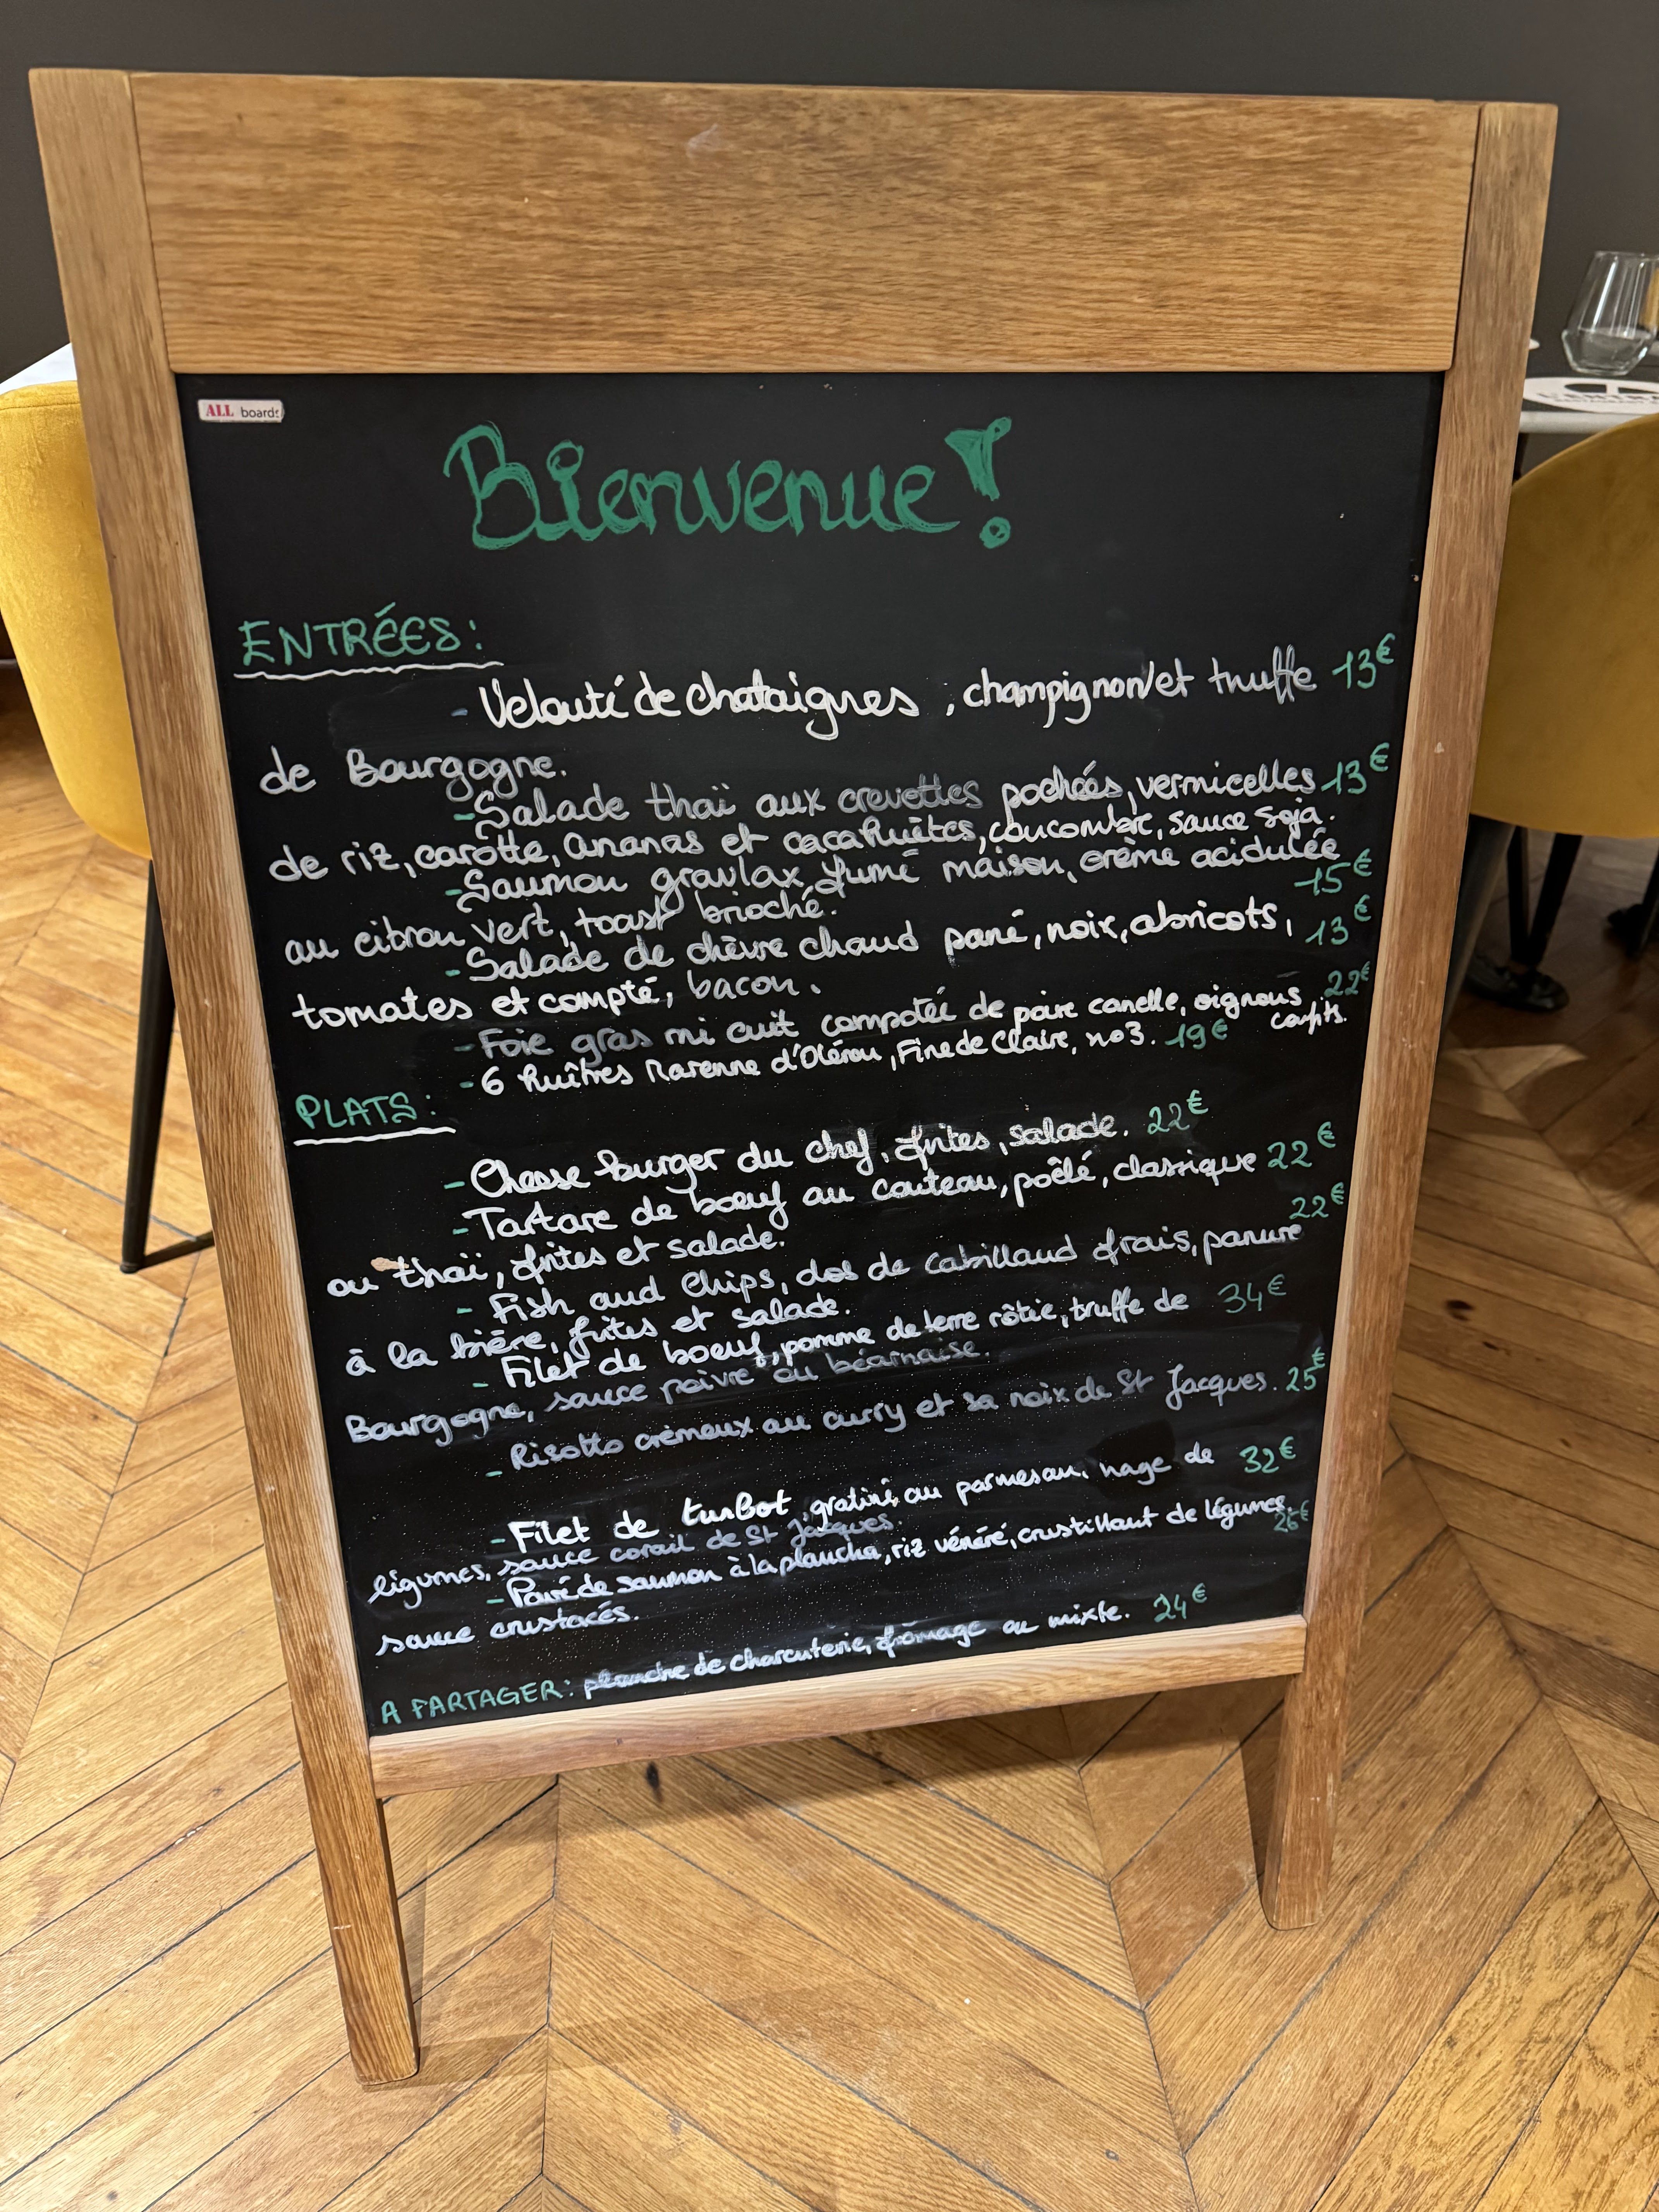 ALL boards
Bienvenue!
ENTRÉES:
- Velouté de chataignes, champignon et truffe 13€
de Bourgogne.
- Salade thaï aux crevettes pochées, vermicelles 13€
de riz, carotte, ananas et cacahuètes, concombre, sauce soja.
- Saumon gravlax, fumé maison, crème acidulée
au citron vert, toast brioché. 15€
- Salade de chèvre chaud pané, noix, abricots, 13€
tomates et compté, bacon.
- Foie gras mi cuit compotée de poire canelle, oignons 22€
confits.
- 6 huîtres Marenne d'Olérou, Fine de Claire, no3. 19€
PLATS:
- Cheese burger du chef, frites, salade. 22€
- Tartare de boeuf au couteau, poêlé, classique 22€
ou thaï, frites et salade.
- Fish and Chips, dos de cabillaud frais, panure 22€
à la bière, frites et salade.
- Filet de boeuf, pomme de terre rôtie, truffe de 34€
Bourgogne, sauce poivre ou béarnaise.
- Risotto crémeux au curry et sa noix de St Jacques. 25€
- Filet de turbot, gratiné au parmesan, nage de 32€
légumes, sauce corail de St Jacques.
- Pavé de saumon à la plancha, riz vénéré, croustillant de légumes, 26€
sauce crustacés.
A PARTAGER: planche de charcuterie, fromage ou mixte. 24€